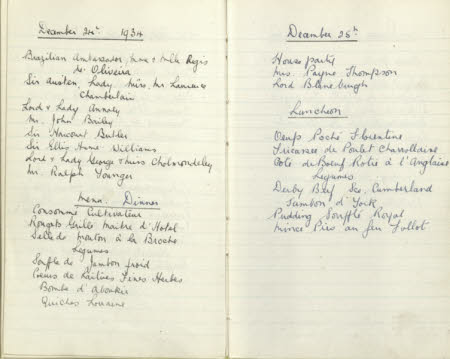 December 24th 1934
Brazilian Ambassador, Mme & Mlle Regis
de Oliveira
Sir Austen, Lady, Miss, Mr Lawrence
Chamberlain
Lord & Lady Annaly
Mr. John Bailey
Sir Harcourt Butler
Sir Ellis Hume Williams
Lord & Lady George & Miss Cholmondeley
Mr. Ralph Younger
Menu. Dinner
Consommé Cultivateur
Rougets Grillé Maitre d'Hotel
Selle de Mouton à la Broche
Legumes
Souffle de Jambon froid
Coeurs de Laitues Fines Herbes
Bombe d'Aboukir
Quiches Lorraine
December 25th
House party
Mrs. Payne Thompson
Lord Blanesburgh
Luncheon
Oeufs Poché Florentine
Fricassee de Poulet
Cote de Boeuf Rotie à l'Anglaise
Legumes
Derby Beef Sce. Cumberland
Jambon d'York
Pudding Soufflé Royal
Mince Pies au feu follot